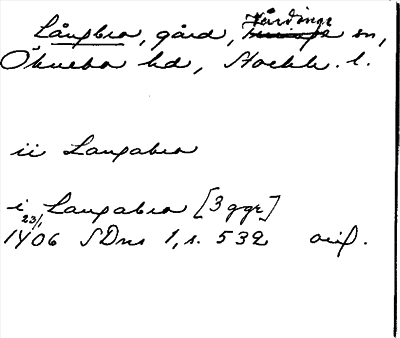 Långbro, gård, Vårdinge sn,
Öknebo hd, Stockh. l.
ii Langabro
i Langabro [3 ggr]
23/1 1406 SDns 1, s. 532 orig.